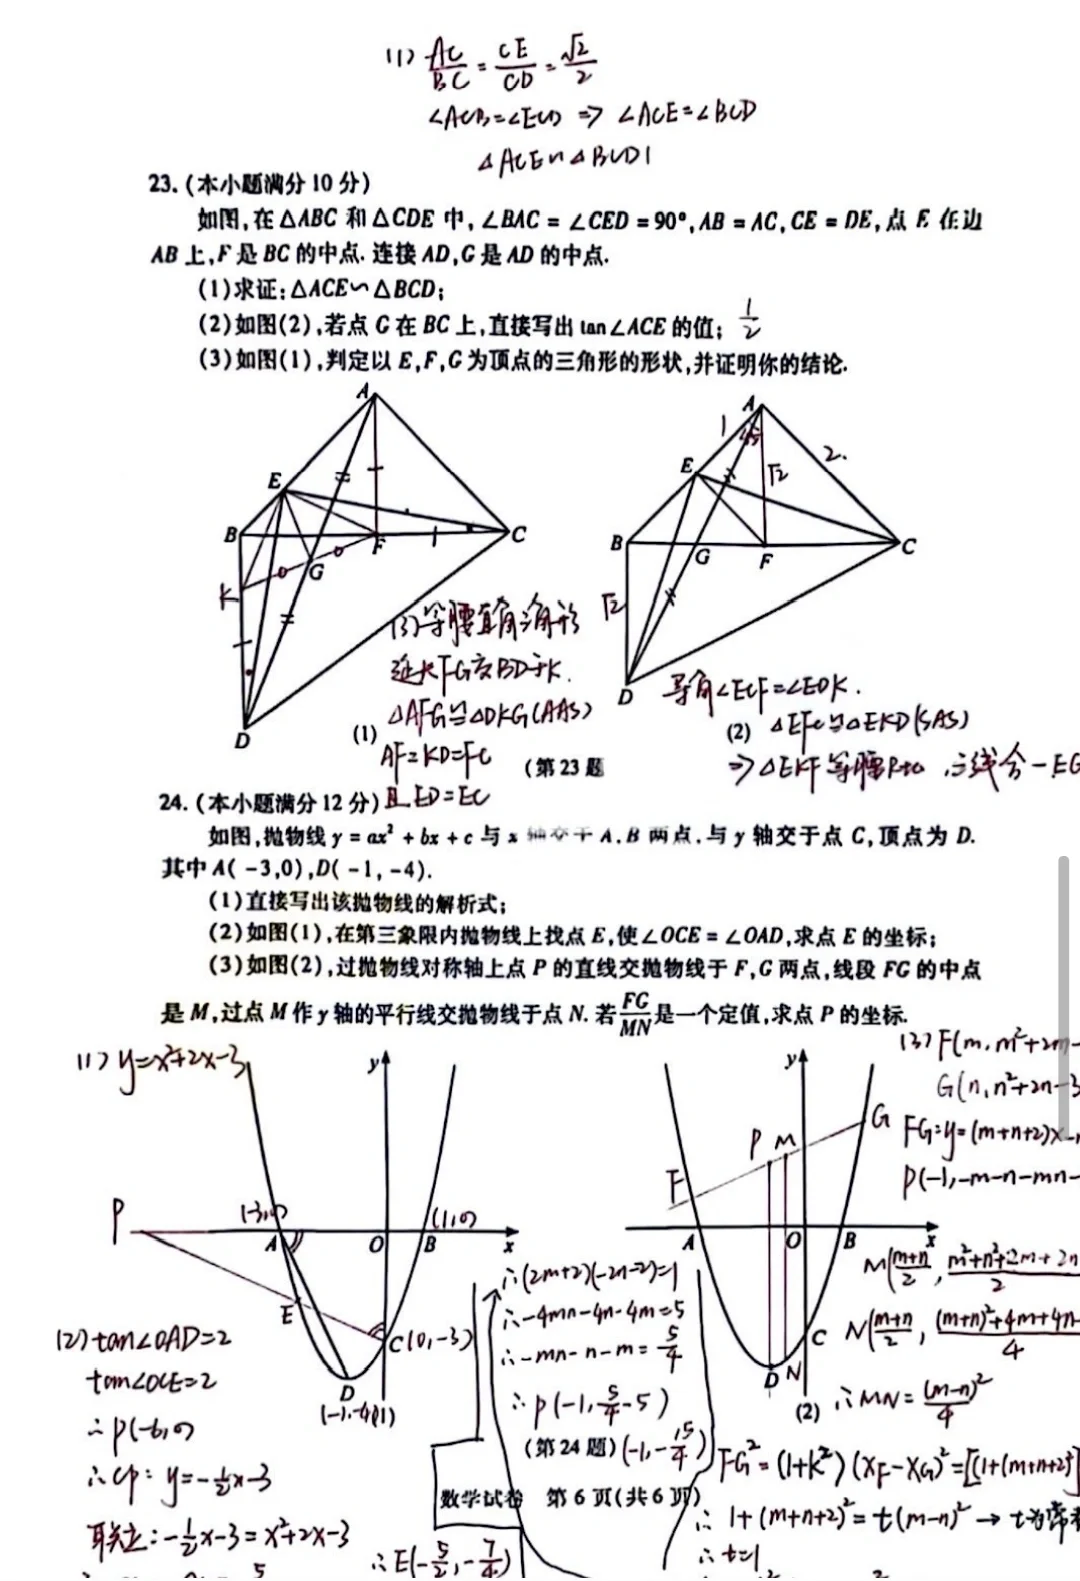 (1) AC/BC = CE/CD = √2/2
∠ACB=∠ECD ⇒ ∠ACE=∠BCD
△ACE∽△BCD
23.(本小题满分10分)
如图,在△ABC和△CDE中,∠BAC=∠CED=90°,AB=AC,CE=DE,点E在边
AB上,F是BC的中点.连接AD,G是AD的中点.
(1)求证:△ACE∽△BCD;
(2)如图(2),若点G在BC上,直接写出tan∠ACE的值; 1/2
(3)如图(1),判定以E,F,G为顶点的三角形的形状,并证明你的结论.
A
E
B
F
C
G
K
D
(1)
A
1
45
2.
E
√2
B
G
F
C
√2
D
(2)
(3)等腰直角三角形
延长FG交BD于K.
△AFG≌△DKG(AAS)
AF=KD=FC
且ED=EC
导角∠ECF=∠EDK.
△EFC≌△EKD(SAS)
⇒△EKF等腰Rt△,三线合一EG
(第23题
24.(本小题满分12分)
如图,抛物线y=ax²+bx+c与x轴交于A,B两点,与y轴交于点C,顶点为D.
其中A(-3,0),D(-1,-4).
(1)直接写出该抛物线的解析式;
(2)如图(1),在第三象限内抛物线上找点E,使∠OCE=∠OAD,求点E的坐标;
(3)如图(2),过抛物线对称轴上点P的直线交抛物线于F,G两点,线段FG的中点
是M,过点M作y轴的平行线交抛物线于点N.若FG/MN是一个定值,求点P的坐标.
(1) y=x²+2x-3
y
P
(-3,0)
(1,0)
A
O
B
x
E
C(0,-3)
D
(-1,-4)
(1)
(2) tan∠OAD=2
tan∠OCE=2
∴P(-6,0)
∴CP: y=-1/2x-3
联立:-1/2x-3=x²+2x-3
∴E(-5/2,-7/4)
y
P
M
G
F
A
O
B
x
C
D
N
(2)
(3) F(m,m²+2m-
G(n,n²+2n-3
FG:y=(m+n+2)x-
P(-1,-m-n-mn-
M(m+n/2, m²+n²+2m+2n
N(m+n/2, (m+n)²+4m+4n
4
∴MN=(m-n)²/4
FG²=(1+k²)(xF-xG)²=[(1+(m+n+2)²]
∴1+(m+n+2)²=t(m-n)²→t为常
∴t=1
∴(2m+2)(-2n-2)=1
∴-4mn-4n-4m=5
∴-mn-n-m=5/4
∴P(-1,5/4-5)
(-1,-15/4)
(第24题)
数学试卷 第6页(共6页)